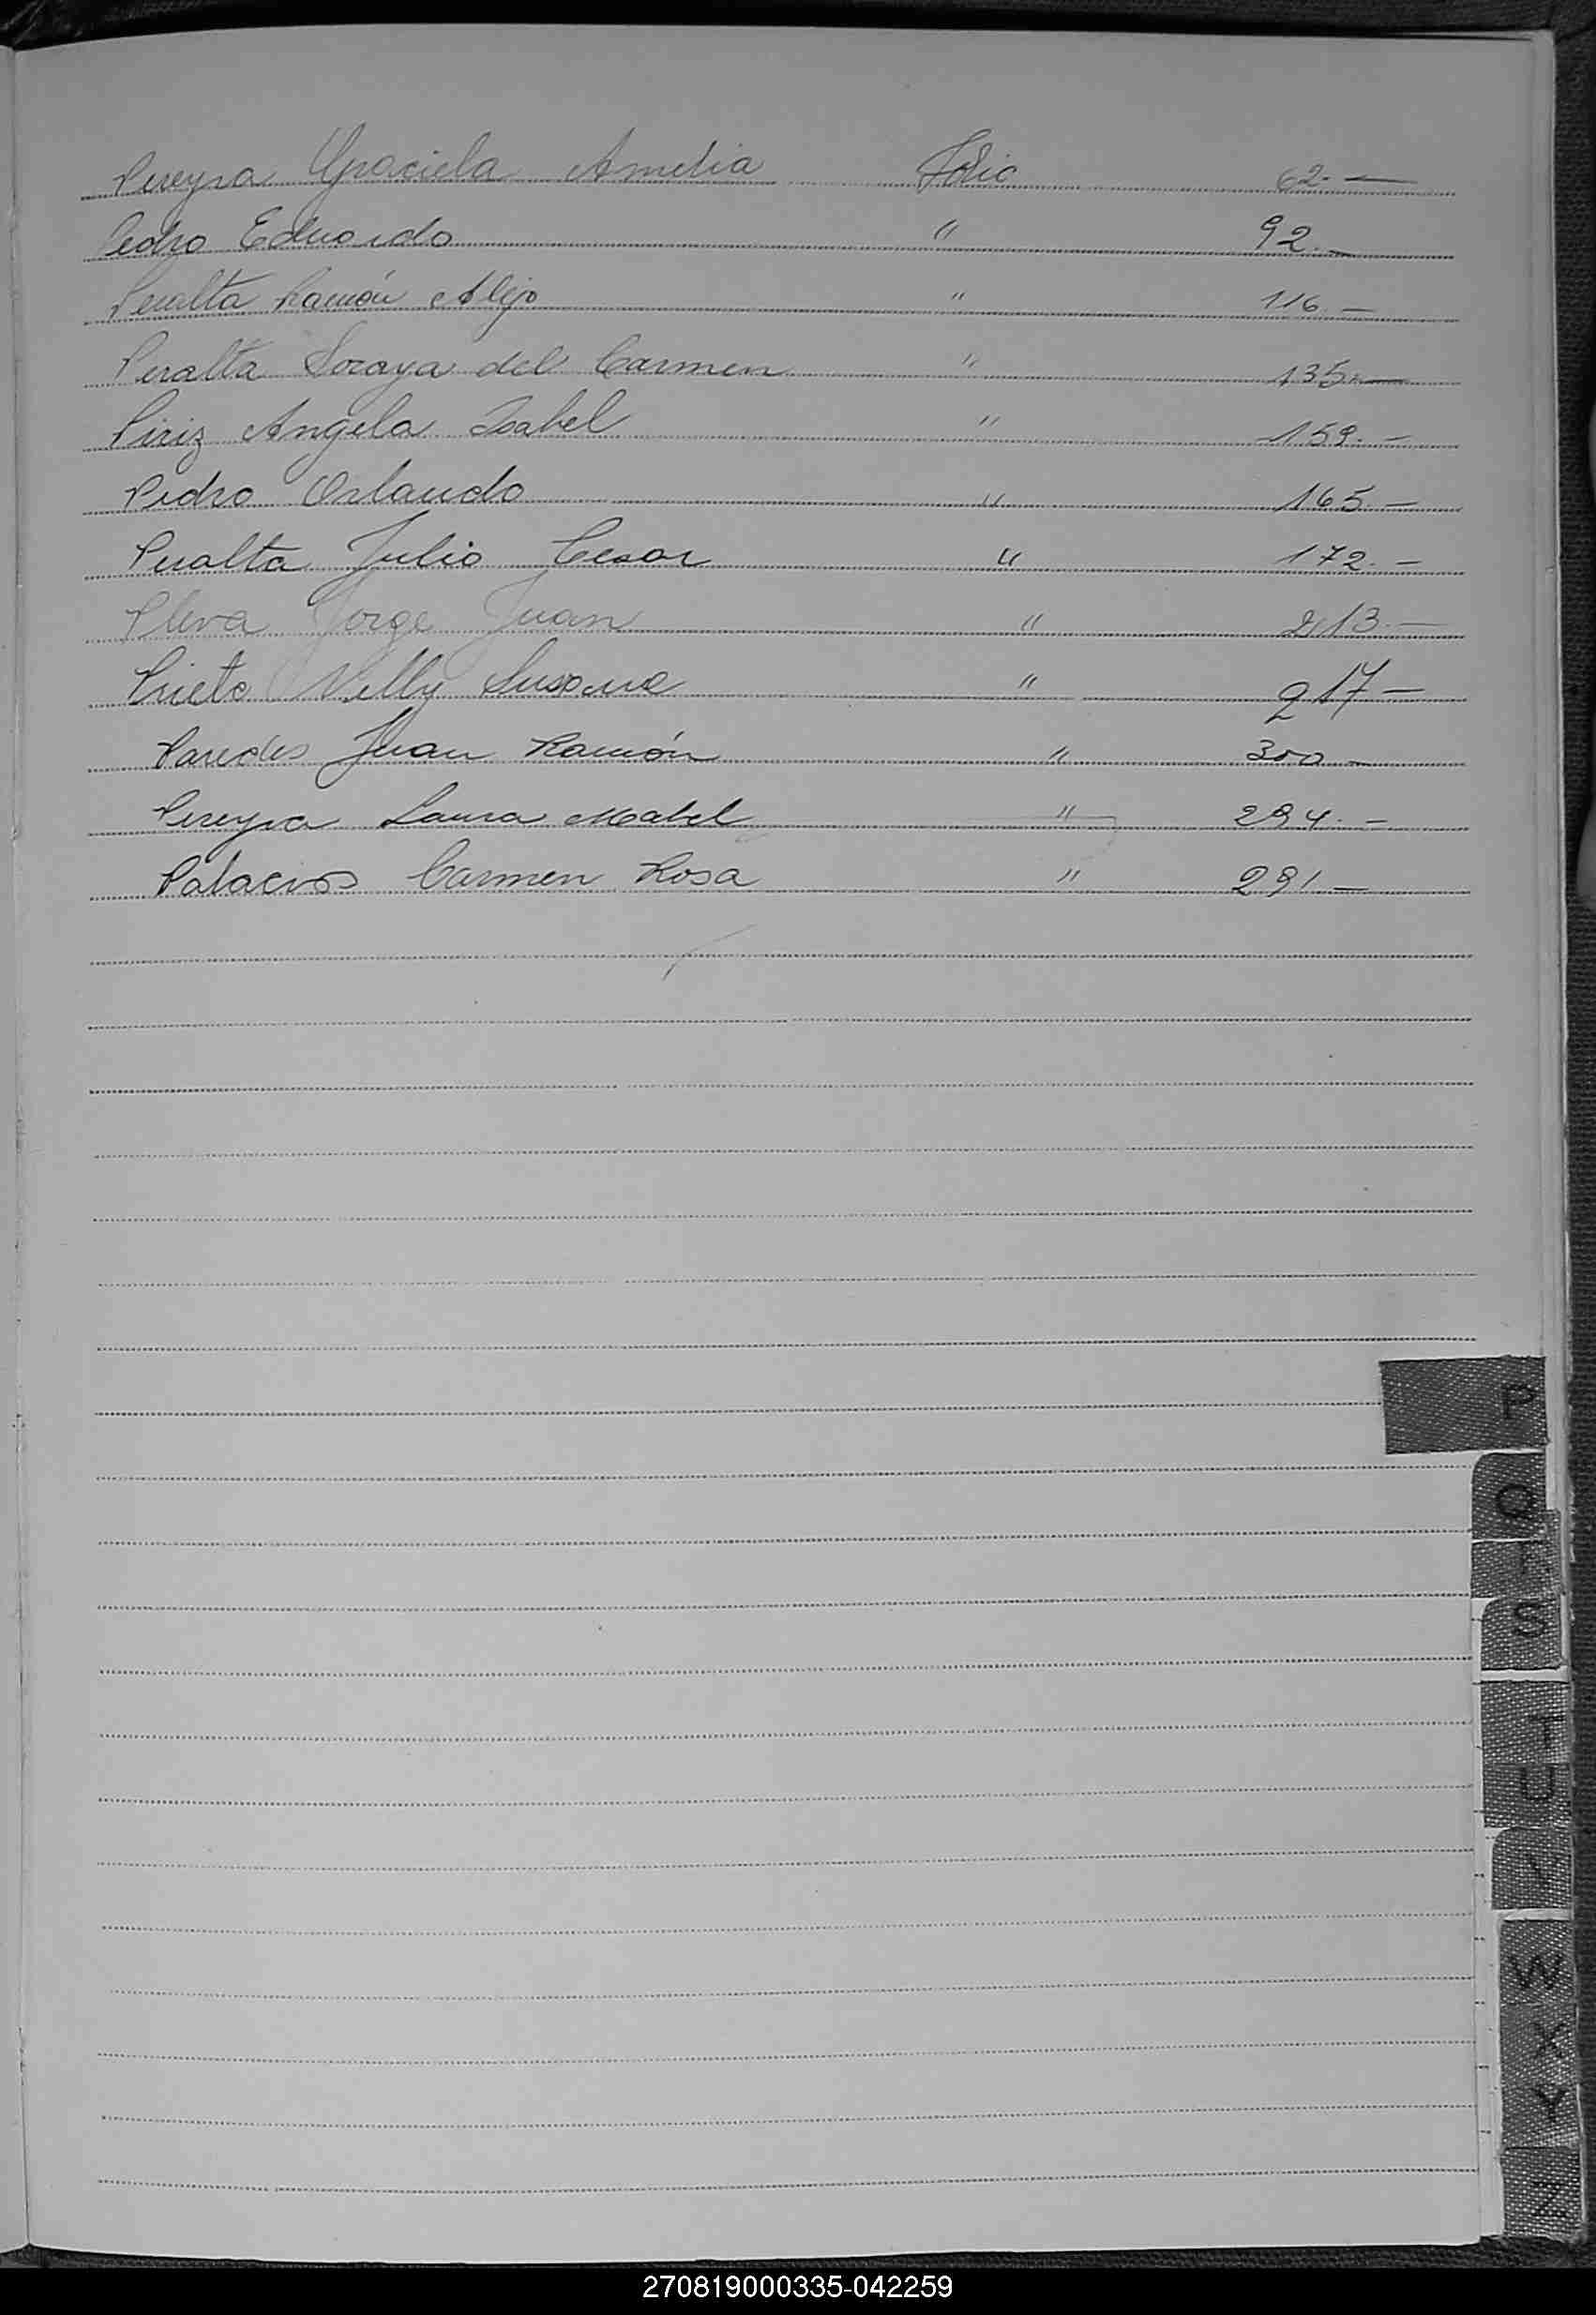 Pereyra Graciela Amelia Folio 62.—
Pedro Eduardo " 92.—
Peralta Ramón Alejo " 116.—
Peralta Soraya del Carmen " 135.—
Piriz Angela Isabel " 159.—
Pedro Orlando " 165.—
Peralta Julio Cesar " 172.—
Pleva Jorge Juan " 213.—
Prieto Nelly Susana " 217—
Paredes Juan Ramón " 300—
Pereyra Laura Mabel " 294.—
Palacios Carmen Rosa " 291—
P
Q
S
T
U
V
W
X
Y
Z
270819000335-042259